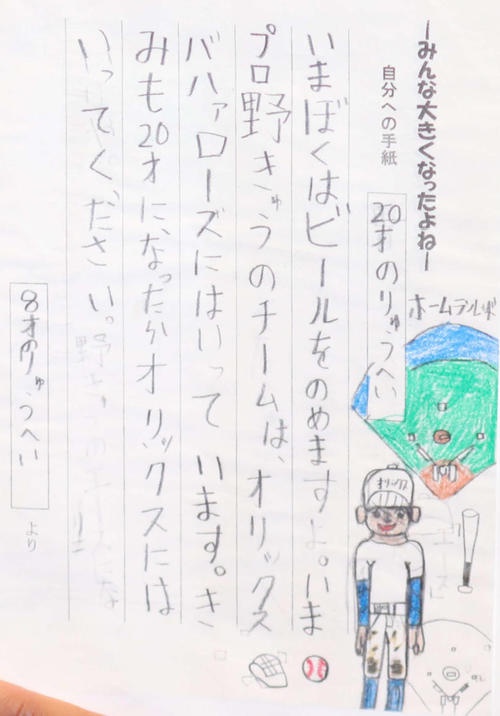 ーみんな大きくなったよねー
自分への手紙
20才のりゅうへい
いまぼくは、ビールをのめますよ。いま
プロ野きゅうのチームは、オリックス
バハァローズにはいって います。き
みも20才に、なったかオリックスには
いってください。
8才のりゅうへい
より
オリックス